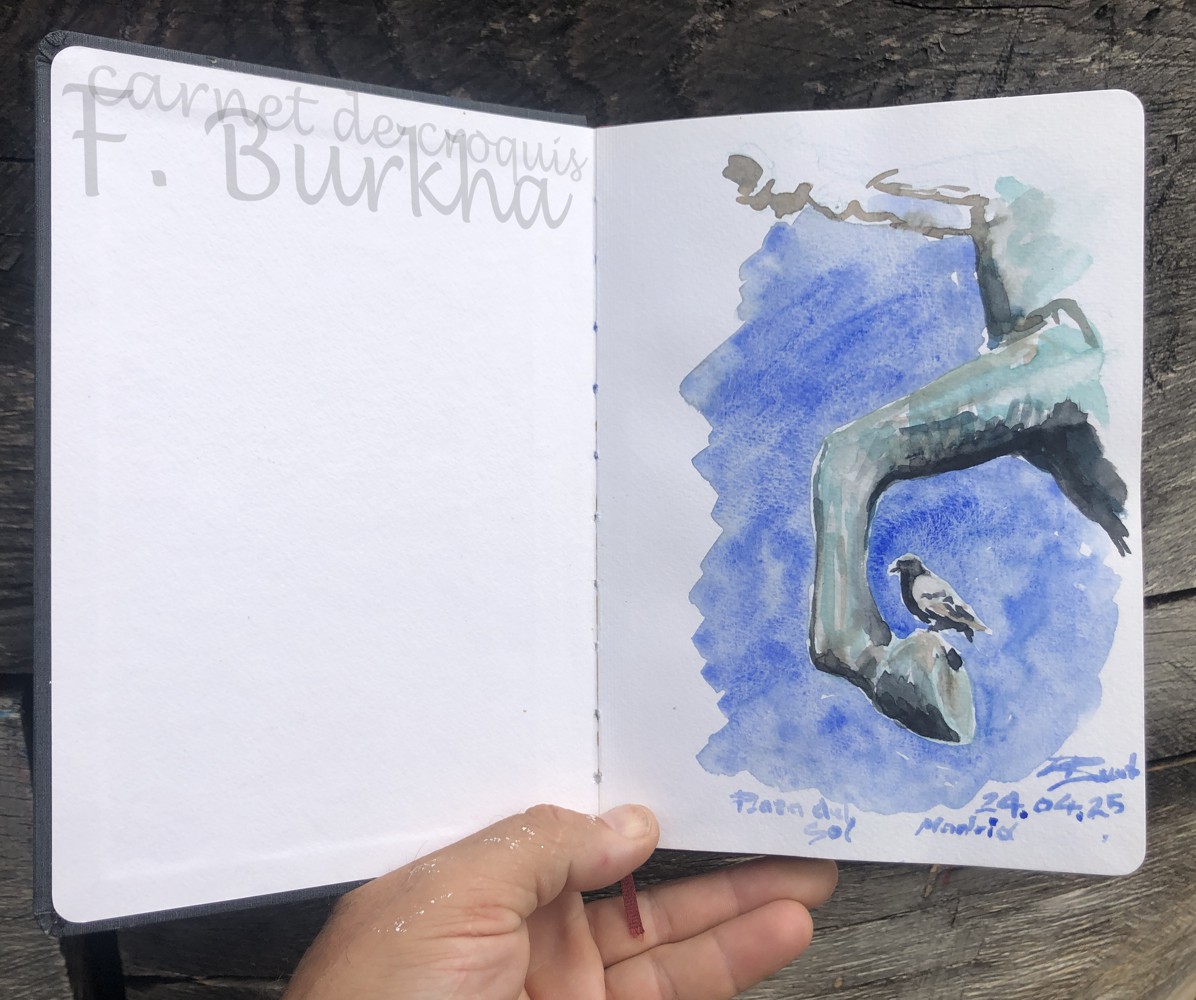 carnet de croquis
F. Burkha
Plaza del
Sol
Madrid
24.04.25